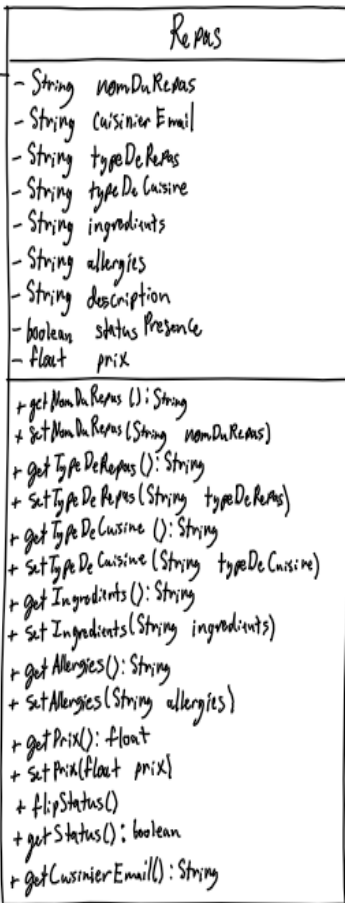 Repas
- String nomDuRepas
- String CuisinierEmail
- String typeDeRepas
- String typeDeCuisine
- String ingredients
- String allergies
- String description
- boolean statusPresence
- float prix
+ getNomDuRepas(): String
+ setNomDuRepas(String nomDuRepas)
+ getTypeDeRepas(): String
+ setTypeDeRepas(String typeDeRepas)
+ getTypeDeCuisine(): String
+ setTypeDeCuisine(String typeDeCuisine)
+ getIngredients(): String
+ setIngredients(String ingredients)
+ getAllergies(): String
+ setAllergies(String allergies)
+ getPrix(): float
+ setPrix(float prix)
+ flipStatus()
+ getStatus(): boolean
+ getCuisinierEmail(): String